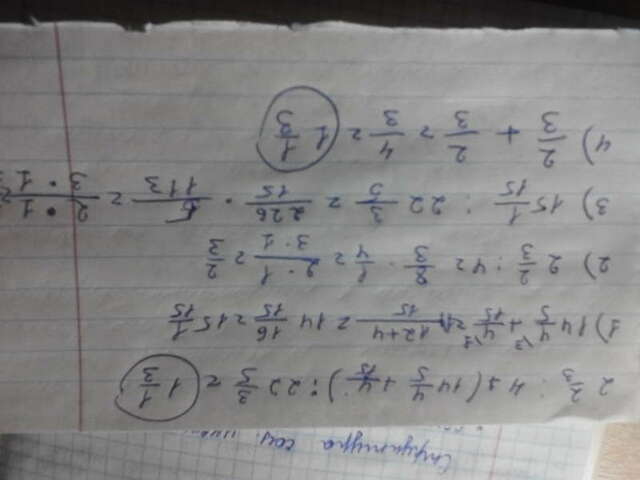 2 2/3 : 4 + (14 4/5 + 4/15) : 22 3/5 = 1 1/3
1) 14 4/5 + 4/15 = 14 12+4/15 = 14 16/15 = 15 1/15
2) 2 2/3 : 4 = 8/3 · 1/4 = 2·1/3·1 = 2/3
3) 15 1/15 : 22 3/5 = 226/15 · 5/113 = 2·1/3·1 =
4) 2/3 + 2/3 = 4/3 = 1 1/3
Структура